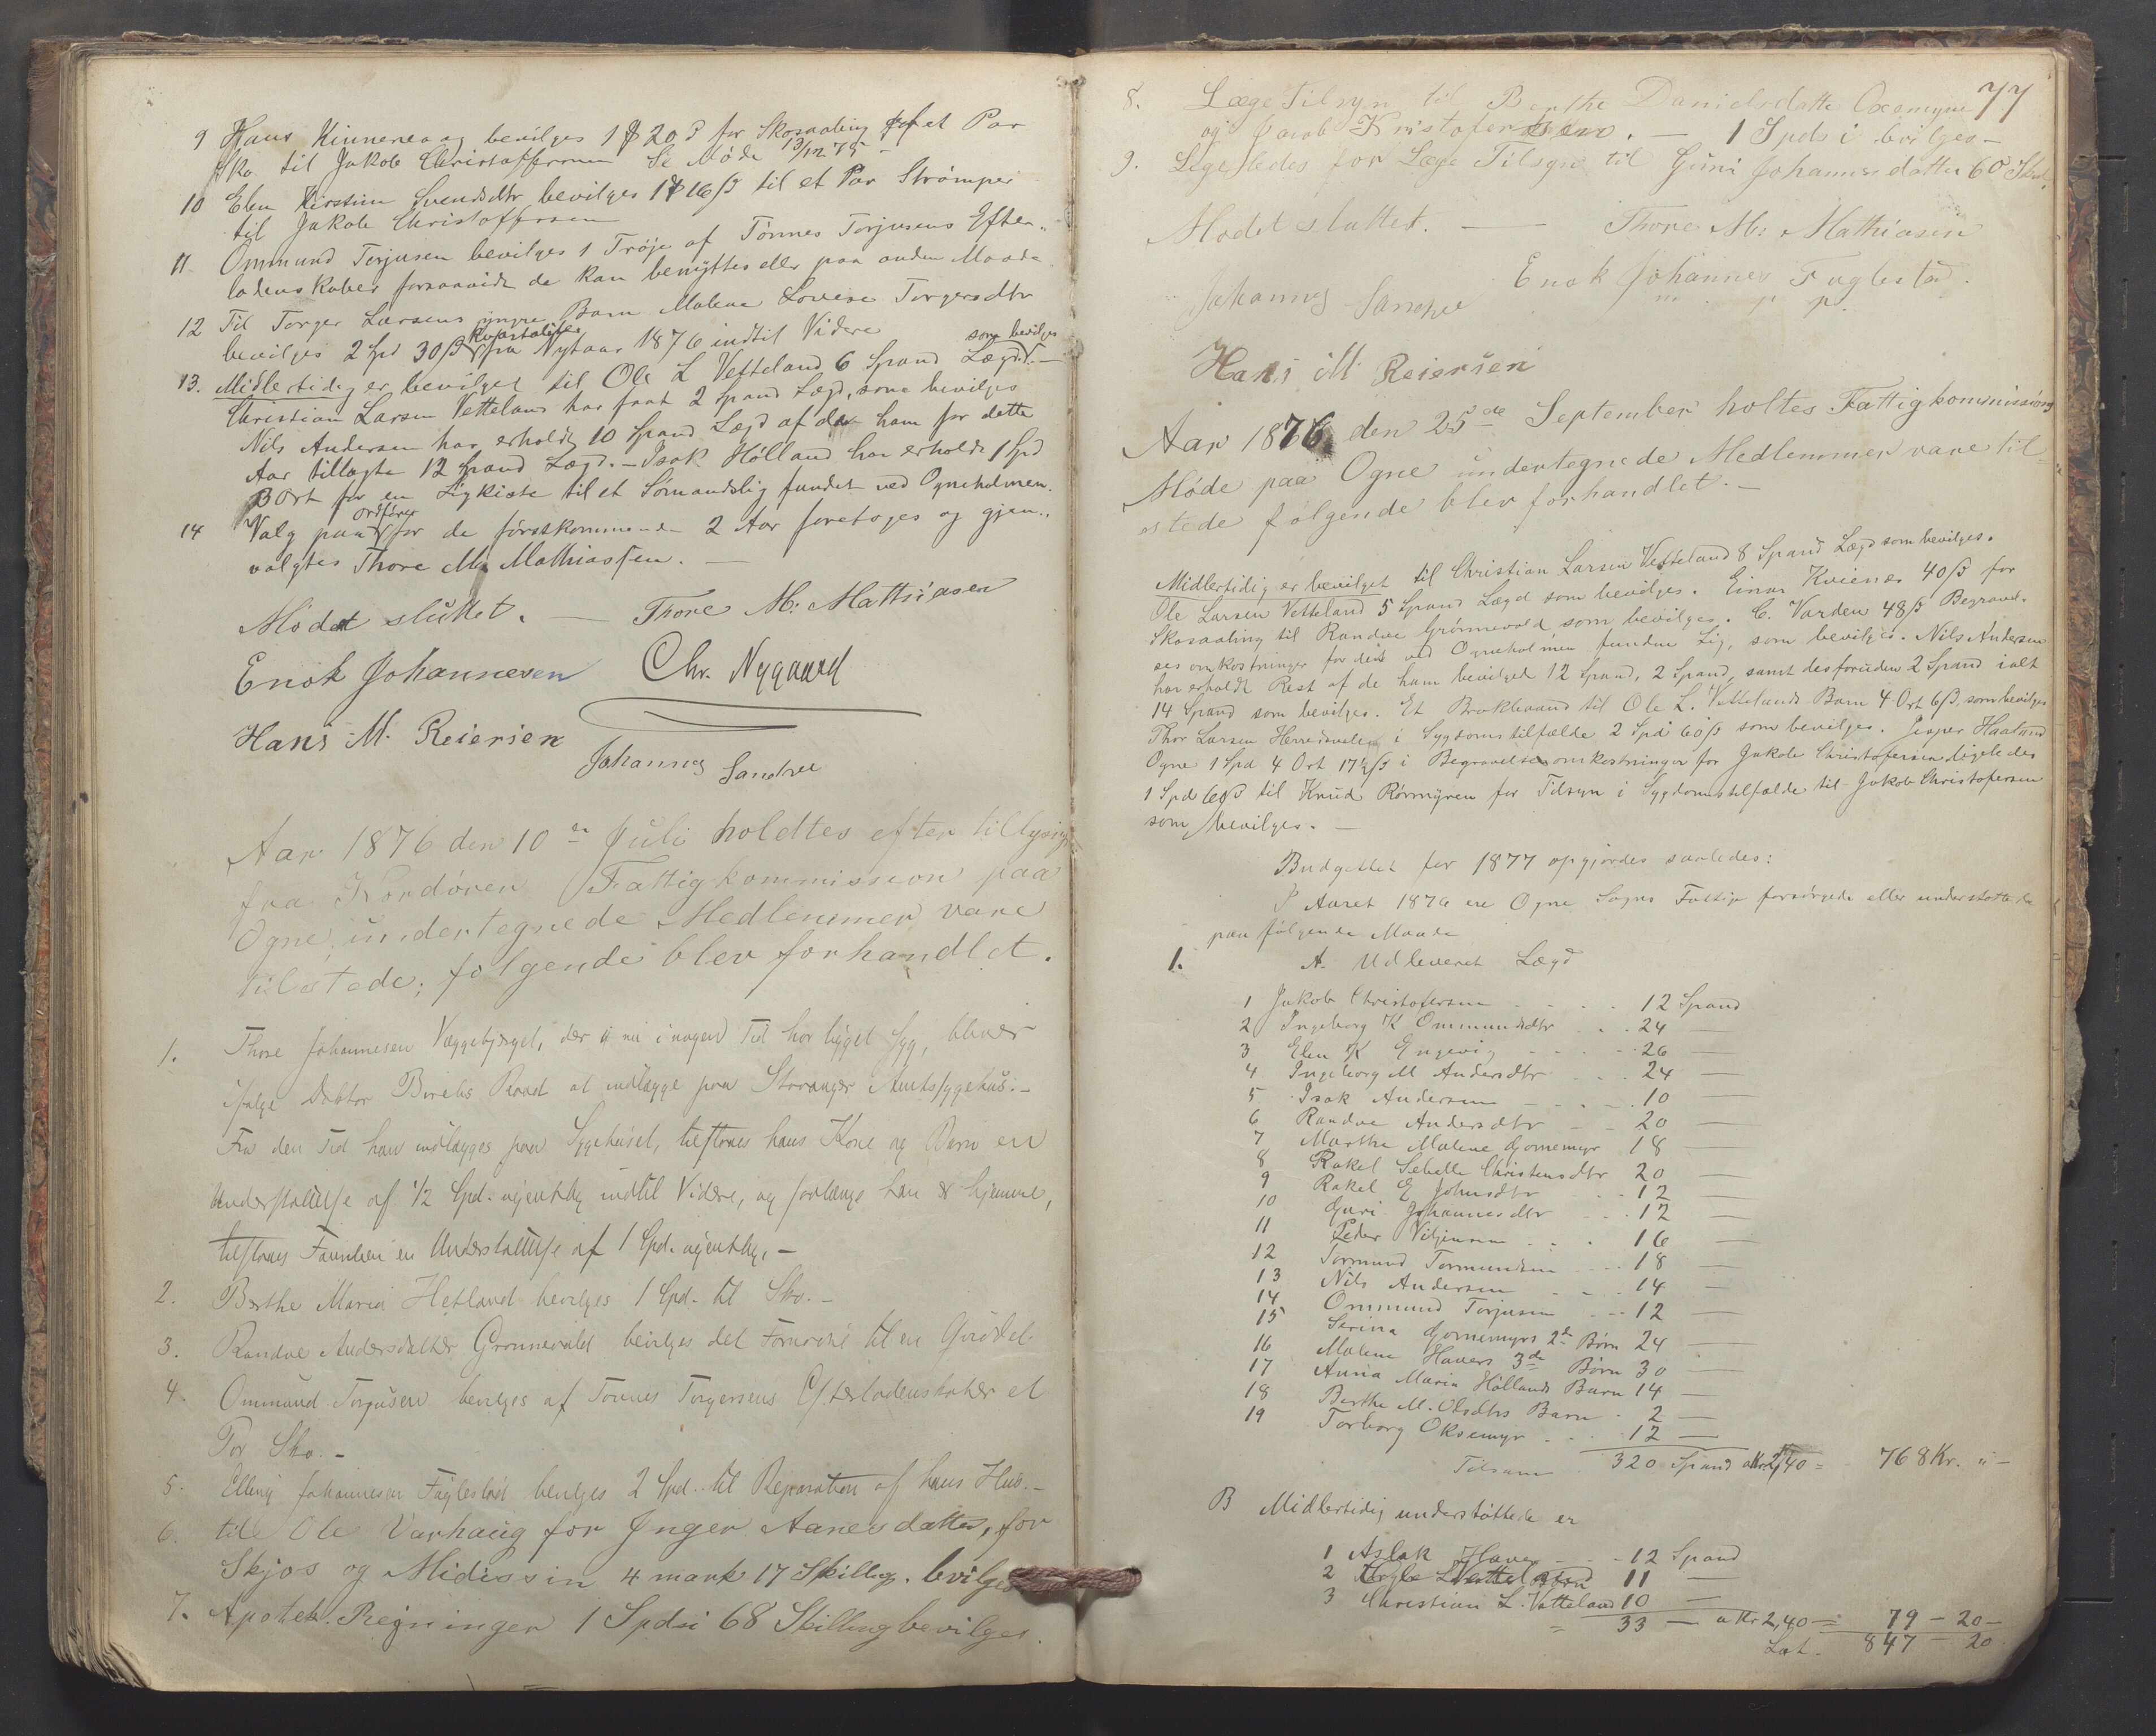 9 Hans Kinnereaag bevilges 1 20 ß for Skosaaling et Par
Sko til Jakob Christoffersen Se Møde 13/12 75 –
10 Elen Kirstine Svendsdtr bevilges 16 ß til et Par Strømper
til Jakob Christoffersen
11 Ommund Torjusen bevilges 1 Trøje af Tønnes Torjusens Efter„
ladenskaber forsaavidt de kan benyttes eller paa anden Maade
12 Til Torger Larsens yngre Barn Malene Lovise Torgersdtr
bevilges 2 Spd 30 ß kvartaliter fra Nytaar 1876 indtil Videre
13. Midlertidig er bevilget til Ole L Vetteland 6 Spand Lægd som bevilges. –
Christian Larsen Vetteland har faat 2 Spand Lægd, som bevilges
Nils Andersen har erholdt 10 Spand Lægd af de ham for dette
Aar tillagte 12 Spand Lægd. – Isak Hølland har erholdt 1 Spd
Ort for en Ligkiste til et Sømandslig fundet ved Ogneholmen.
14 Valg paa Ordfører for de førstkommende 2 Aar foretoges og gjen„
valgtes Thore M. Mathiassen. –
Mødet sluttet. – Thore M: Matthiasen
Enok Johannesen Chr. Nygaard
Hans M. Reiersen
Johannes Sandve
Aar 1876 den 10de Juli holdtes efter tillysing
fra Kordøren Fattigkommission paa
Ogne, undertegnede Medlemmer vare
tilstede; følgende blev forhandlet.
1. Thore Johannesen Væggebjerget, der nu i nogen Tid har ligget syg, bliver
ifølge Doktor Raad at indlægge paa Stavanger Amtssygehus. –
Fra den Tid han indlægges paa Sygehuset, tilstaaes hans Kone og Børn en
Understøttelse af 1/2 Spd. ugentlig indtil Videre, og saalænge han er hjemme,
tilstaaes Familien en Understøttelse af 1 Spd. ugentlig. –
2. Berthe Maria Hetland bevilges 1 Spd. til Sko. –
3. Randve Andersdatter Grønnevald bevilges det Fornødne til en
4. Ommund Torjusen bevilges af Tønnes Torgersens Efterladenskaber et
Par Sko. –
5. Elling Johannesen Fuglestad bevilges 2 Spd. til Reparation af hans Hus. –
6. till Ole Varhaug for Inger Aanensdatter, for
Skjøs og Midissin 4 mark 17 Skilling. bvilges
7. Apotek. Regninger 1 Spdsi 68 Skilling bevilges.
77
8. Læge Tilsyn til Berthe Danielsdatte Oxemyre
og Jacob Kristofersen. – 1 Spdsi bvilges –
9. Ligeledes for Læge Tilsyn til Guni Johannesdatter 60 Skil.
Modet sluttet. – Thore M: Mathiasen
Enok Johannes Fuglestad.
Johannes Sandve m. p. p.
Hans M. Reiersen
Aar 1876 den 25de September holtes Fattigkommissions
Møde paa Ogne undertegnede Medlemmer vare til=
stede følgende blev forhandlet. –
Midlertidig er bevilget til Christian Larsen Vetteland 8 Spand Lægd som bevilges.
Ole Larsen Vetteland 5 Spand Lægd som bevilges. Einar Kvienes 40 ß for
Skosaaling til Randve Grønnevald som bevilges. C. Varden 48 ß Begravel-
sesomkostninger for det ved Ogneholmen fundne Lig, som bevilges. Nils Andersen
har erholdt Rest af de ham bevilgede 12 Spand, 2 Spand, samt desforuden 2 Spand ialt
14 Spand som bevilges. Et Brokbaand til Ole L. Vettelands Barn 4 Ort 6 ß, som bevilges
Thor Larsen Herredsvelen i Sygdomstilfælde 2 Spd 60 ß som bevilges. Jesper Haaland
Ogne 1 Spd 4 Ort 17½ ß i Begravelsesomkostninger for Jakob Christofersen ligeledes
1 Spd 60 ß til Knud Rønmyren for Tilsyn i Sygdomstilfælde til Jakob Christofersen
som bevilges. –
Budgettet for 1877 opgjordes saaledes:
I Aaret 1876 ere Ogne Sogns Fattige forsørgede eller understøttede
paa følgende Maade
1. A. Udleveret Lægd
1 Jakob Christofersen . . . . 12 Spand
2 Ingeborg K Ommundsdtr . . 24 —
3 Elen K Engevig . . . . 26 —
4 Ingeborg M Andersdtr . . . 24 —
5 Isak Andersen . . . . 10 —
6 Randve Andersdtr . . 20 —
7 Marthe Malene Gjornemyr 18 —
8 Rakel Sebelle Christensdtr 20 —
9 Rakel E Johnsdtr . . 12 —
10 Guri Johannesdtr . . . 12 —
11 Peder Viljemsen . . . 16 —
12 Tormund Tormundsen . . . 18 —
13 Nils Andersen . . . 14 —
14 Ommund Torjusen . . 12 —
15 Serina Gjornemyrs 2de Børn 24 —
16 Malene Havers 3de Børn 30 —
17 Anna Maria Høllands Barn 14 —
18 Berthe M. Olsdtrs Barn . 2 —
19 Torborg Oksemyr . . . 12 —
Tilsam 320 Spand a Kr 2,40 = 768 Kr. „ –
B Midlertidig understøttede er
1 Aslak Haver . . . 12 Spand
2 11 —
3 Christian L. Vetteland 10 —
= 33 — a Kr 2,40 = 79 – 20 –
Lat. 847 – 20